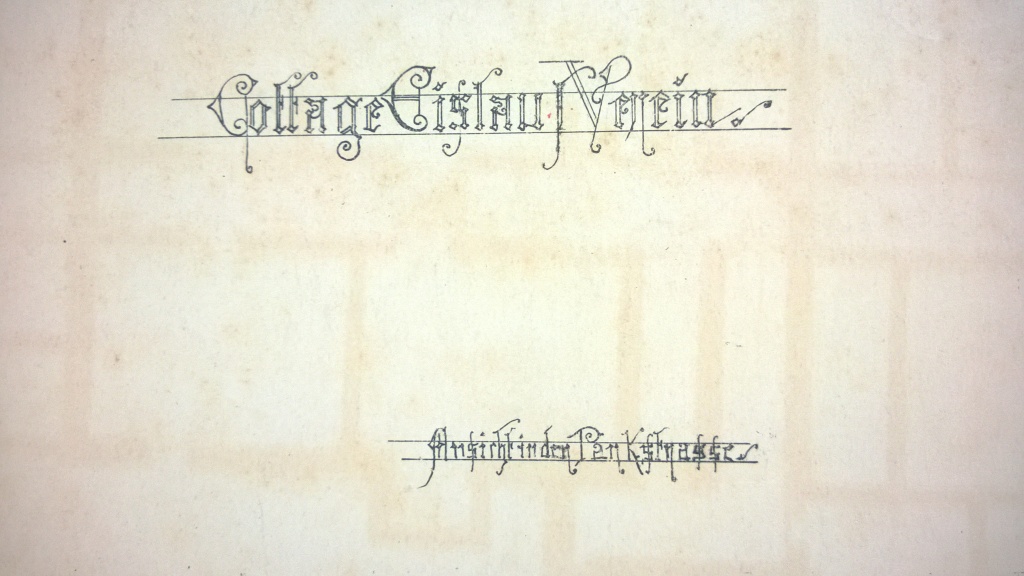 Cottage Eislauf Verein.
Ansicht in der Penkstrasse.